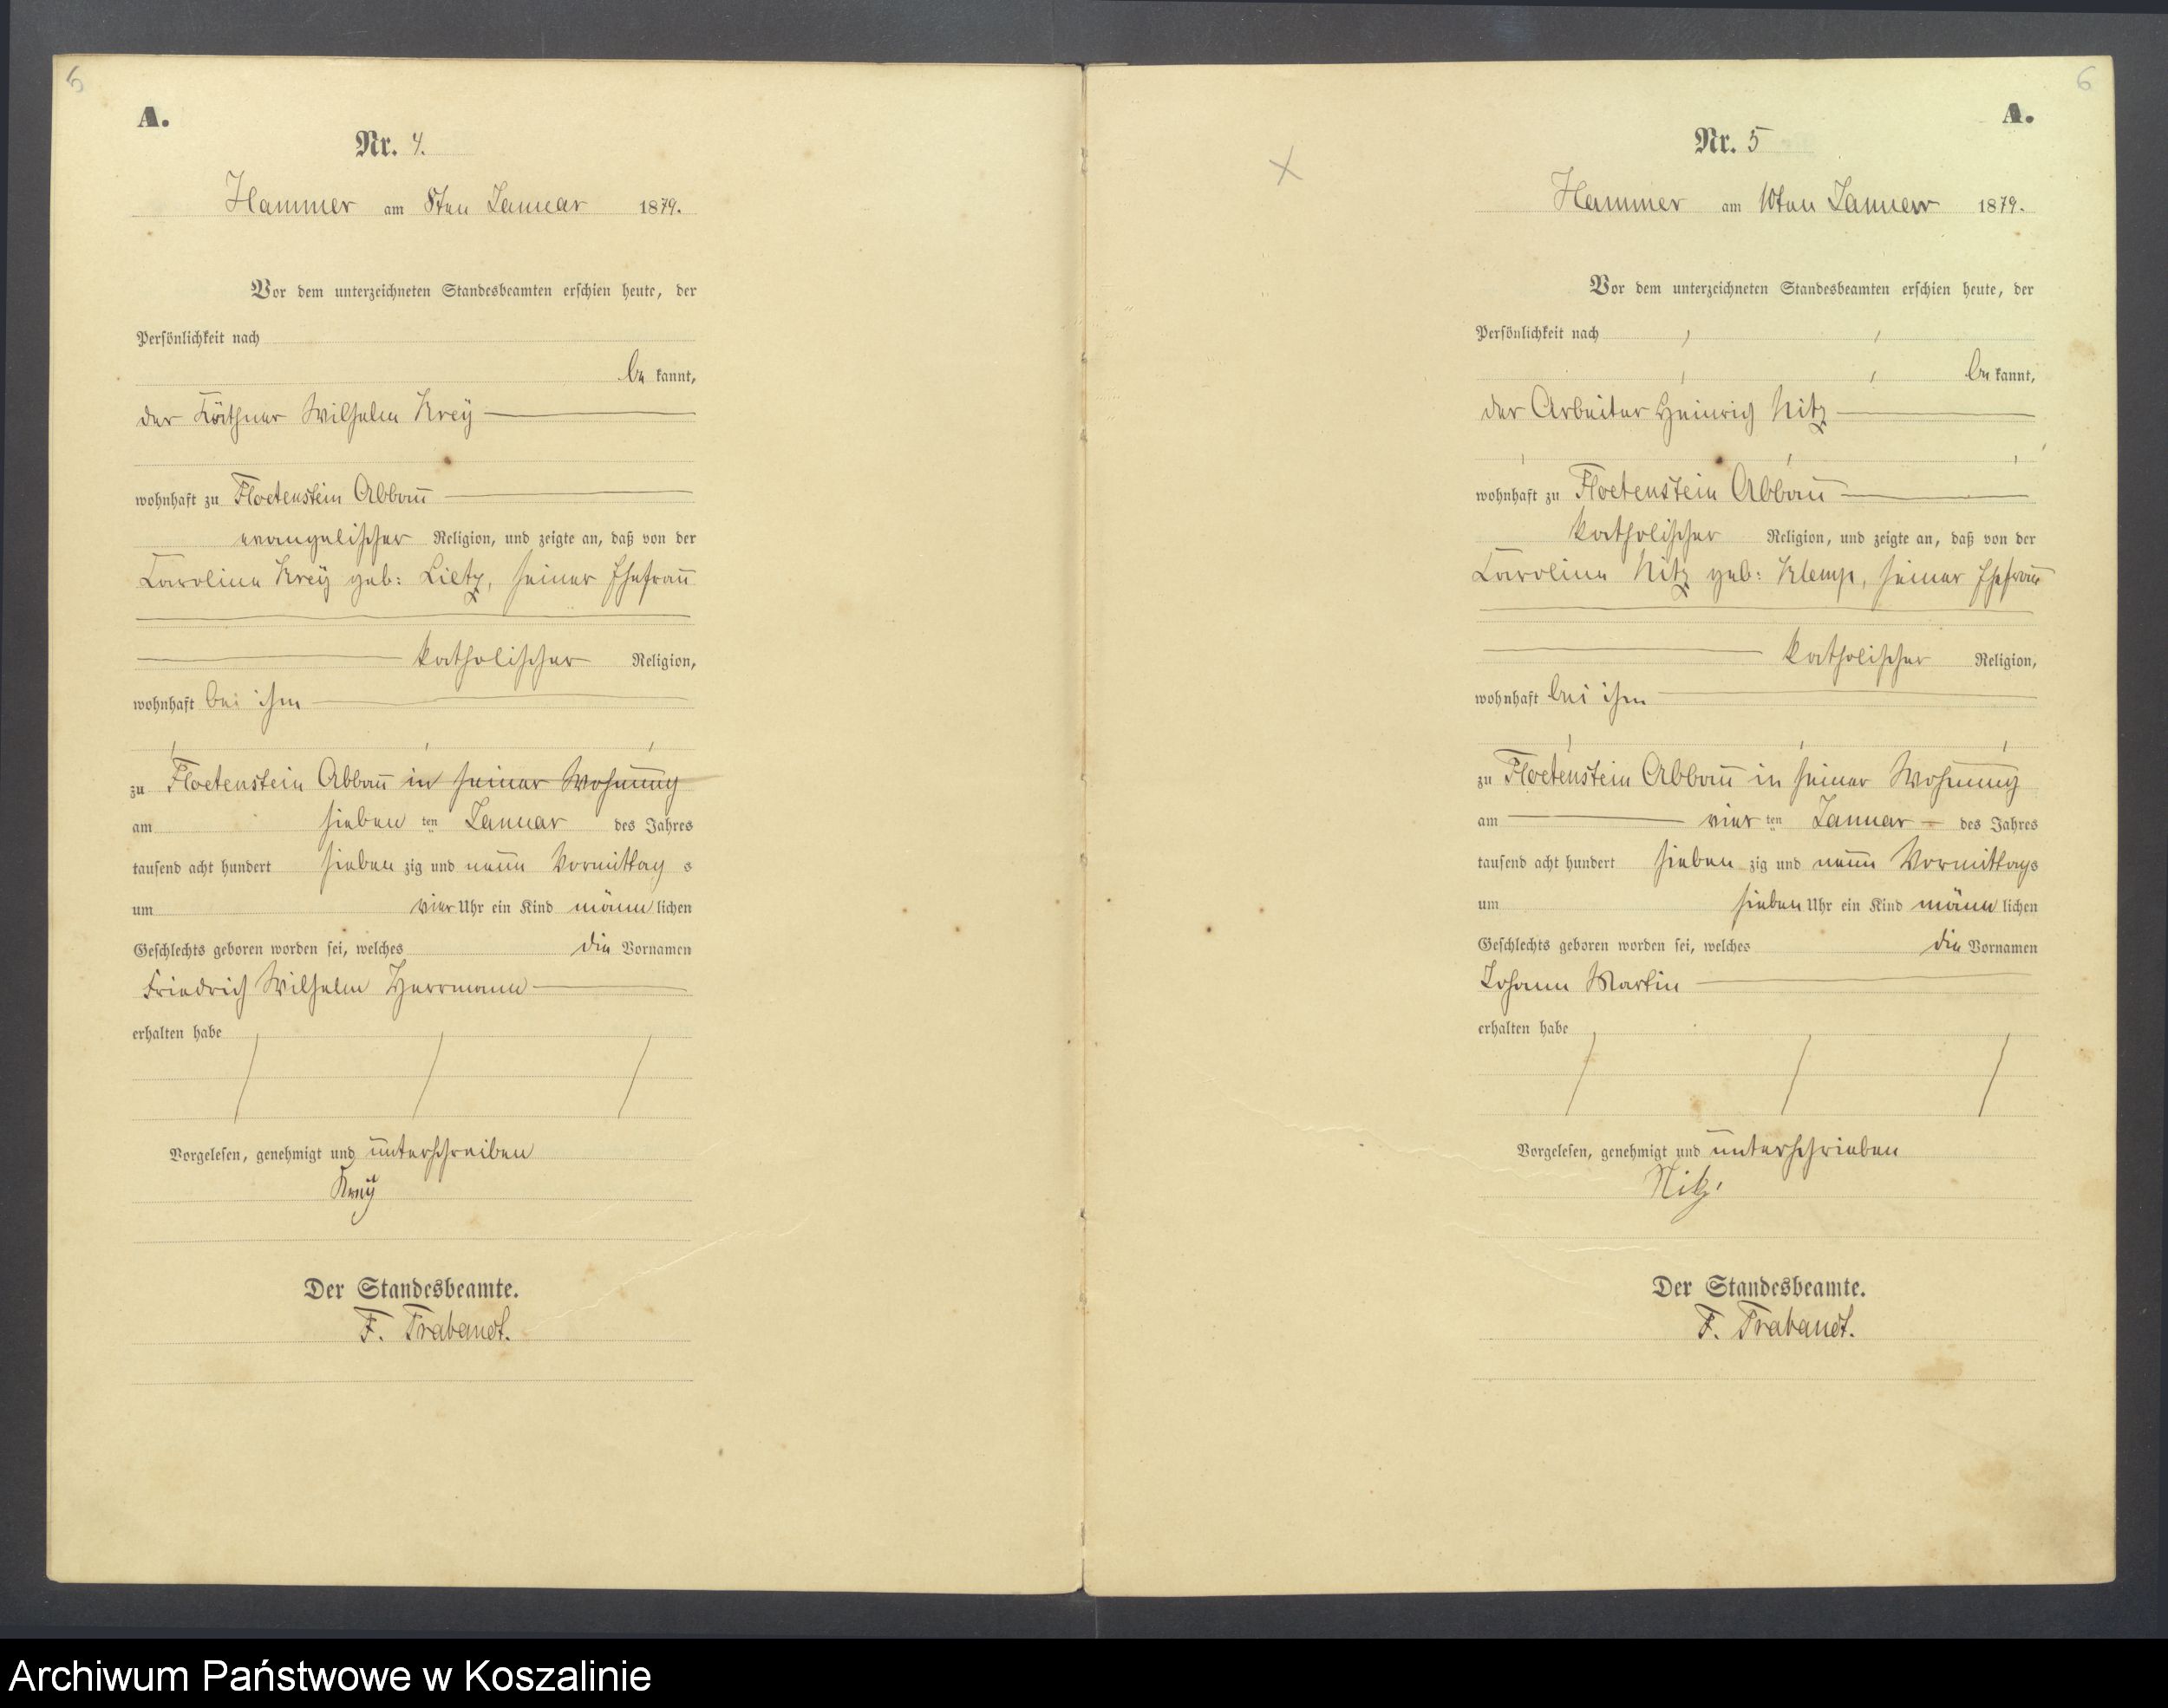 5
A.
Nr. 4.
Hammer am 8ten Januar 1879.
Vor dem unterzeichneten Standesbeamten erschien heute, der
Persönlichkeit nach
be kannt,
der Käthner Wilhelm Kreÿ
wohnhaft zu Floetenstein Abbau
evangelischer Religion, und zeigte an, daß von der
Caroline Kreÿ geb: Lietz, seiner Ehefrau
katholischer Religion,
wohnhaft bei ihm
zu Floetenstein Abbau in seiner Wohnung
am sieben ten Januar des Jahres
tausend acht hundert sieben zig und neun Vormittag s
um vier Uhr ein Kind männ lichen
Geschlechts geboren worden sei, welches die Vornamen
Friedrich Wilhelm Herrmann
erhalten habe
Vorgelesen, genehmigt und unterschreiben
Kreÿ
Der Standesbeamte.
F. Trabandt.
6
A.
Nr. 5
Hammer am 10ten Januar 1879.
Vor dem unterzeichneten Standesbeamten erschien heute, der
Persönlichkeit nach
be kannt,
der Arbeiter Heinrich Nitz
wohnhaft zu Floetenstein Abbau
katholischer Religion, und zeigte an, daß von der
Caroline Nitz geb: Klemp, seiner Ehefrau
katholischer Religion,
wohnhaft bei ihm
zu Floetenstein Abbau in seiner Wohnung
am vier ten Januar des Jahres
tausend acht hundert sieben zig und neun Vormittags
um sieben Uhr ein Kind männ lichen
Geschlechts geboren worden sei, welches die Vornamen
Johann Martin
erhalten habe
Vorgelesen, genehmigt und unterschrieben
Nitz.
Der Standesbeamte.
F. Trabandt.
Archiwum Państwowe w Koszalinie